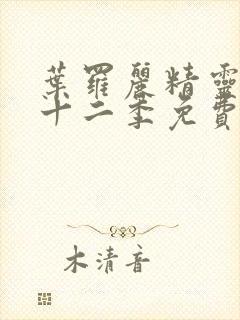 葉羅麗精靈
十二季免費
木清音